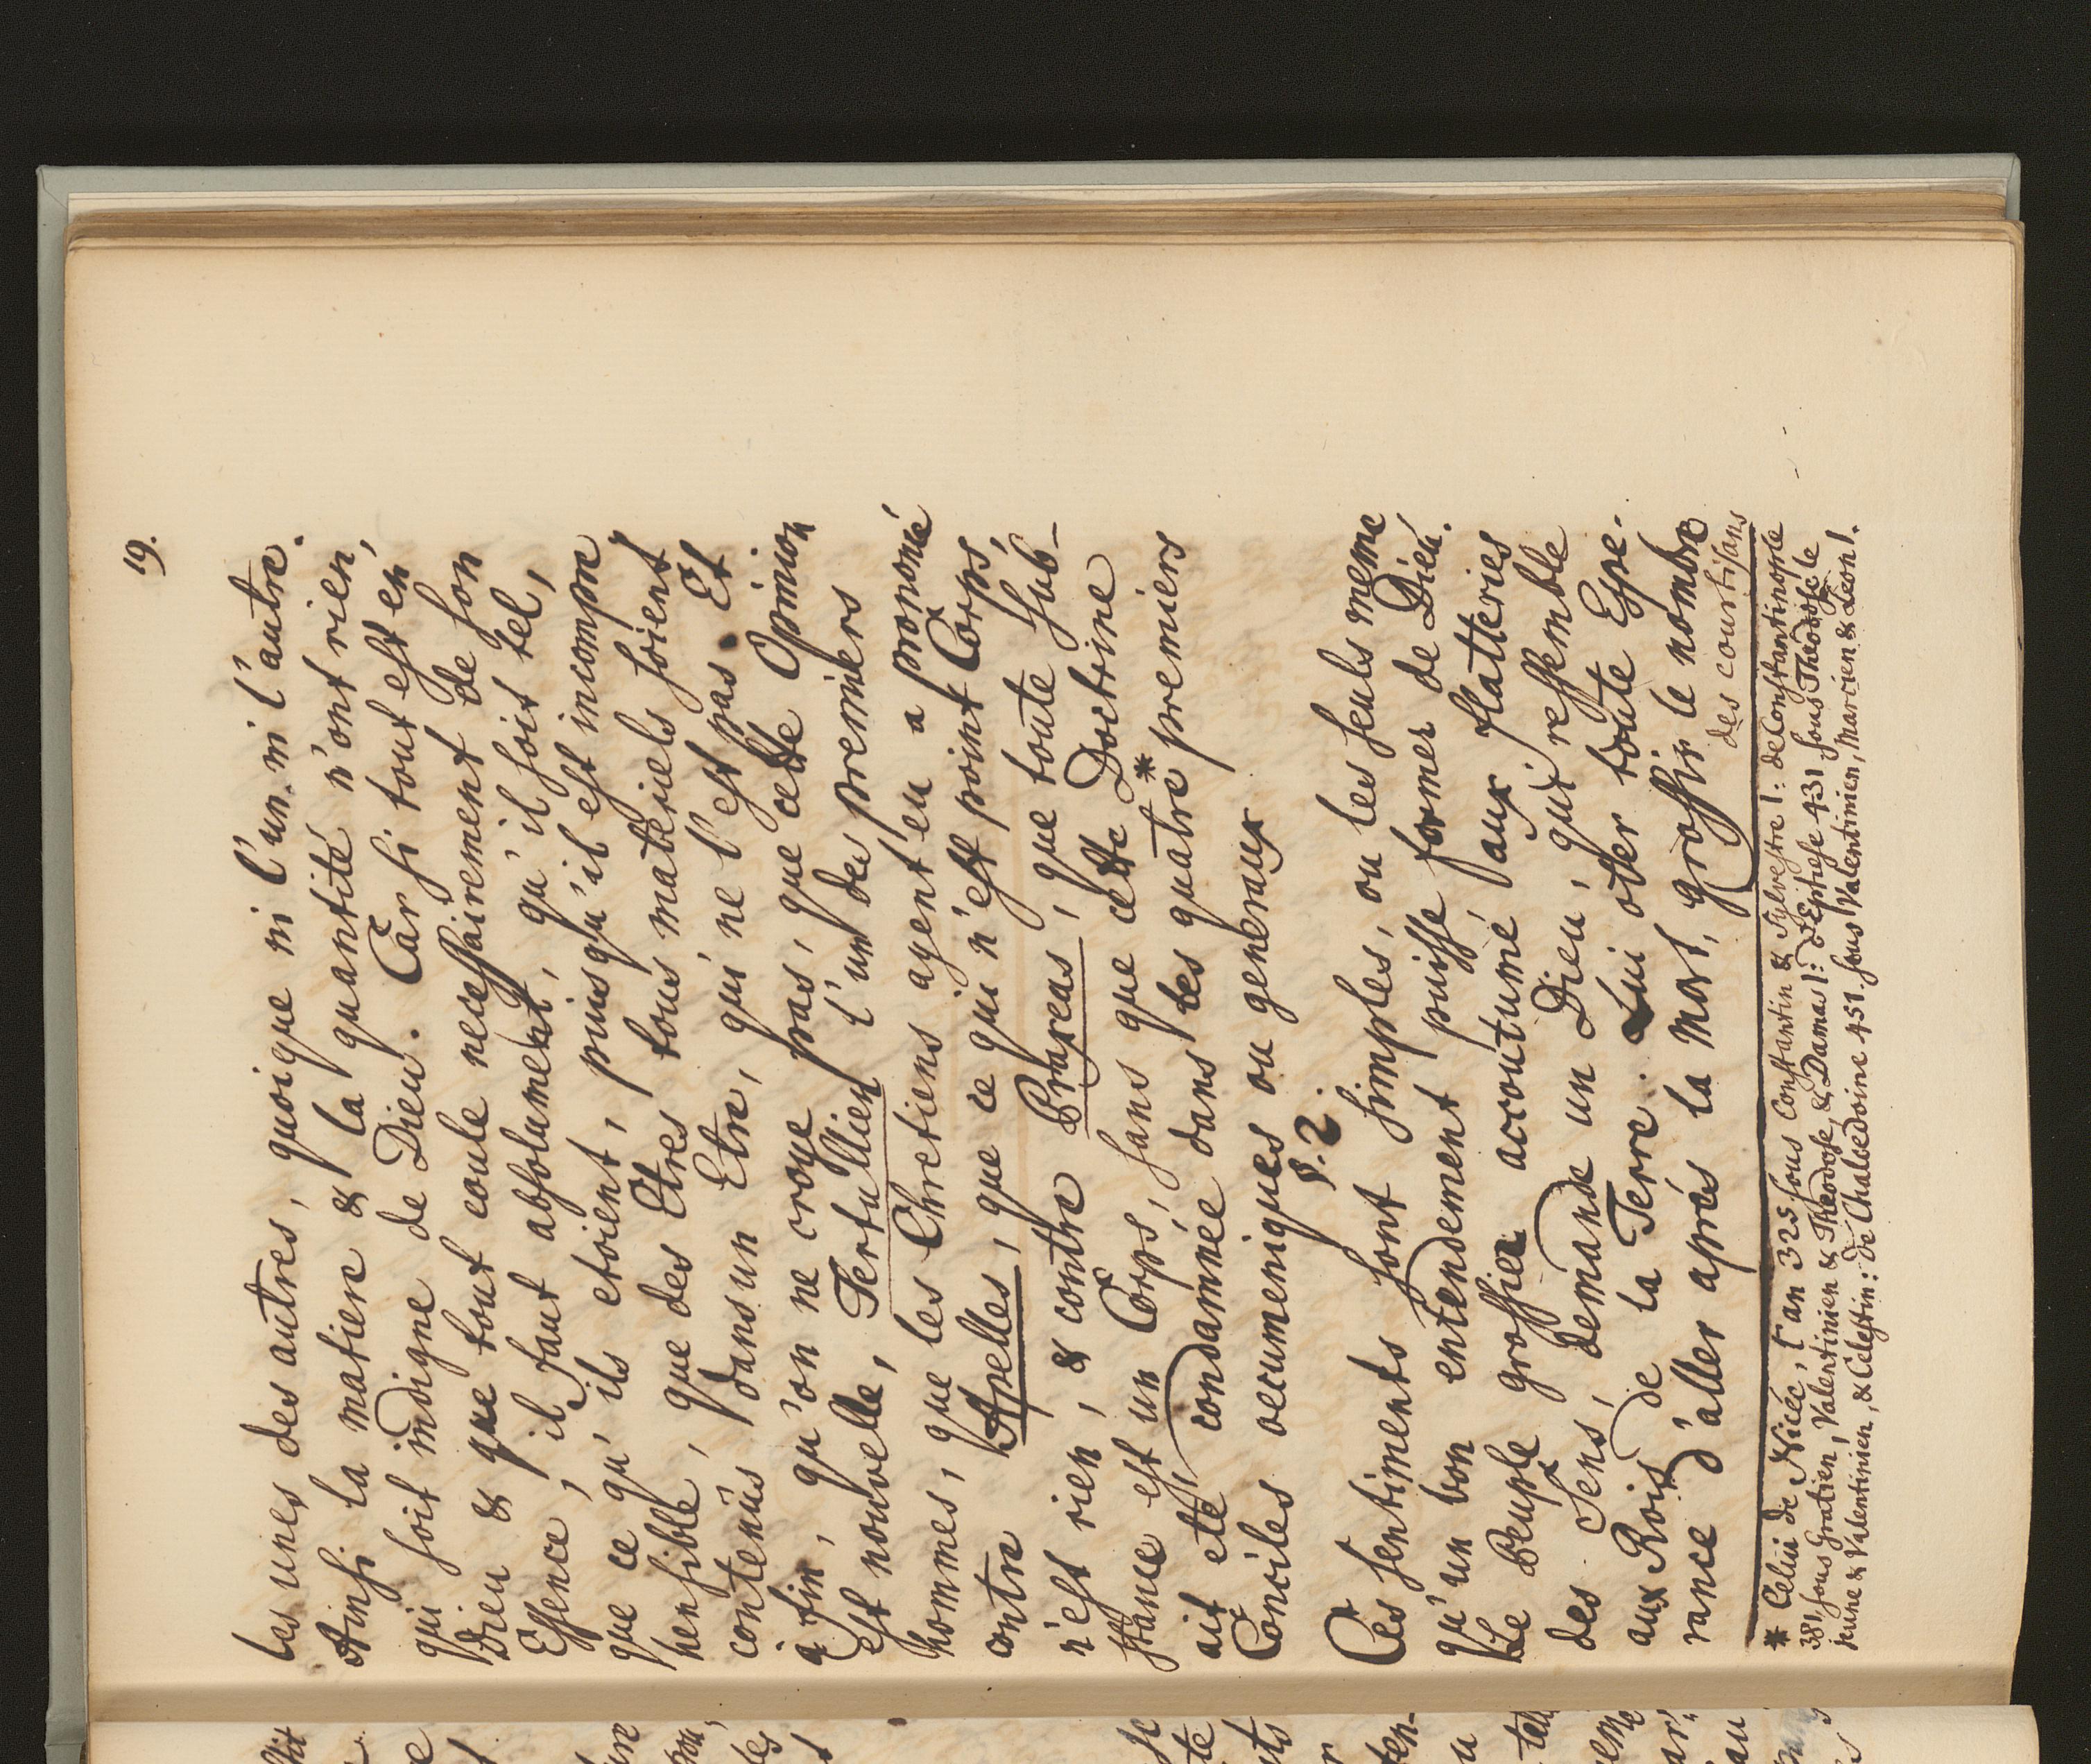 19.
les unes des autres, quoique ni l'un. ni l'autre.
Ainsi la matiere & la quantité n'ont rien,
qui soit indigne de Dieu. Car si tout est en
Dieu & que tout coule necessairement de son
Essence, il faut absolument, qu'il soit tel,
que ce qu'ils etoient, puisqu'il est incompre
hensible, que des Etres tous materiels soient
contenus dans un Etre, qui ne l'est pas. Et
à fin, qu'on ne croye pas, que cette Opinion
est nouvelle, Tertullien l'un des premiers
hommes, que les Chretiens ayent eu a prononcé
contre Apelles, que ce qui n'est point Corps,
n'est rien, & contre Praxeas, que toute sub-
stance est un Corps, sans que cette Doctrine
ait eté condamnée dans les quatre* premiers
Conciles oecumeniques ou generaux
§. 2.
Ces sentiments sont simples, ou les seuls meme
qu'un bon entendement puisse former de Dieu.
Le Peuple grossier accoutumé aux flatteries
des Sens, demande un Dieu, qui ressemble
aux Rois de la Terre. Lui oter toute Espe-
rance d'aller aprés la mort, grossir le nombre
des courtisans
* Celui de Nicée, l'an 325 sous Constantin & Sylvestre I: de Constantinople
381 sous Gratien, Valentinien & Theodose, & Damas I: d'Ephese 431 sous Theodose le
jeune & Valentinien, & Celestin: de Chalcedoine 451. sous Valentinien, Marcien & Leon I.